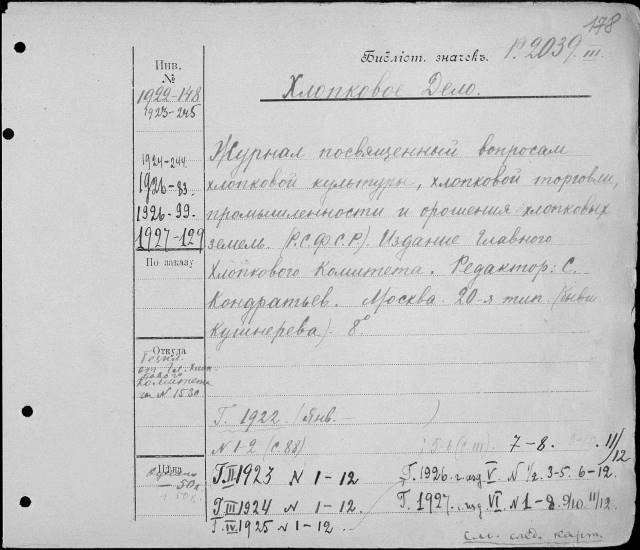 178
Библіот. значекъ. P. 2039. III
Инв.
№
1922-148
1923-245
1924-244
1926-83
1926-99
1927-129
По заказу
Хлопковое Дело.
Журнал посвященный вопросам
хлопковой культуры, хлопковой торговли,
промышленности и орошения хлопковых
земель. (Р.С.Ф.С.Р.). Издание Главного
Хлопкового Комитета. Редактор: С.
Кондратьев. Москва. 20-я тип. (бывш
Кушнерева) 8°
Откуда
от Гл. Хлоп
Комитета
Г. 1922 (Янв. — )
N 1-2 (с. 88) 7-8. 11/12
Цѣна
50к.
Г. II 1923 N 1-12
Г. III 1924 N 1-12.
Г. IV 1925 N 1-12.
Г. 1926. г. изд. V. N 1/2. 3-5. 6-12.
Г. 1927. г. изд. VI N 1-8. 9/10 11/12.
См. след. карт.